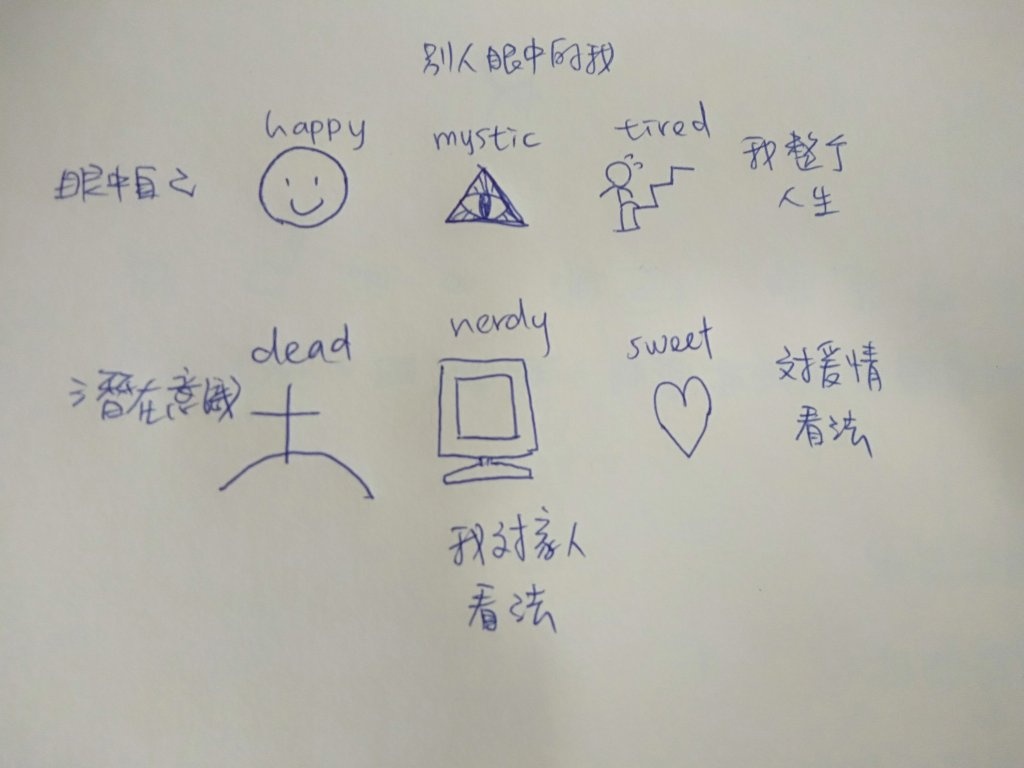 别人眼中的我
happy
mystic
tired
我整个
人生
眼中自己
dead
nerdy
sweet
对爱情
看法
潜在意识
我对家人
看法